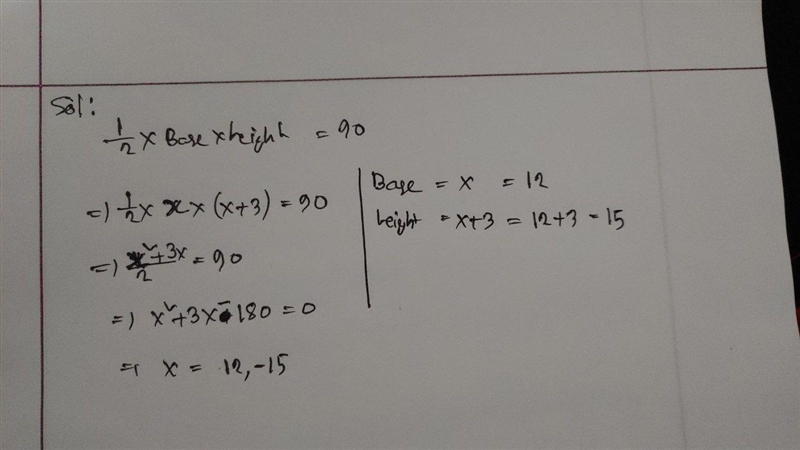 Sol:
1/2 × Base × height = 90
=) 1/2 × x × (x+3) = 90
=) x²+3x/2 = 90
=) x²+3x-180 = 0
=) x = 12, -15
Base = x = 12
height = x+3 = 12+3 = 15